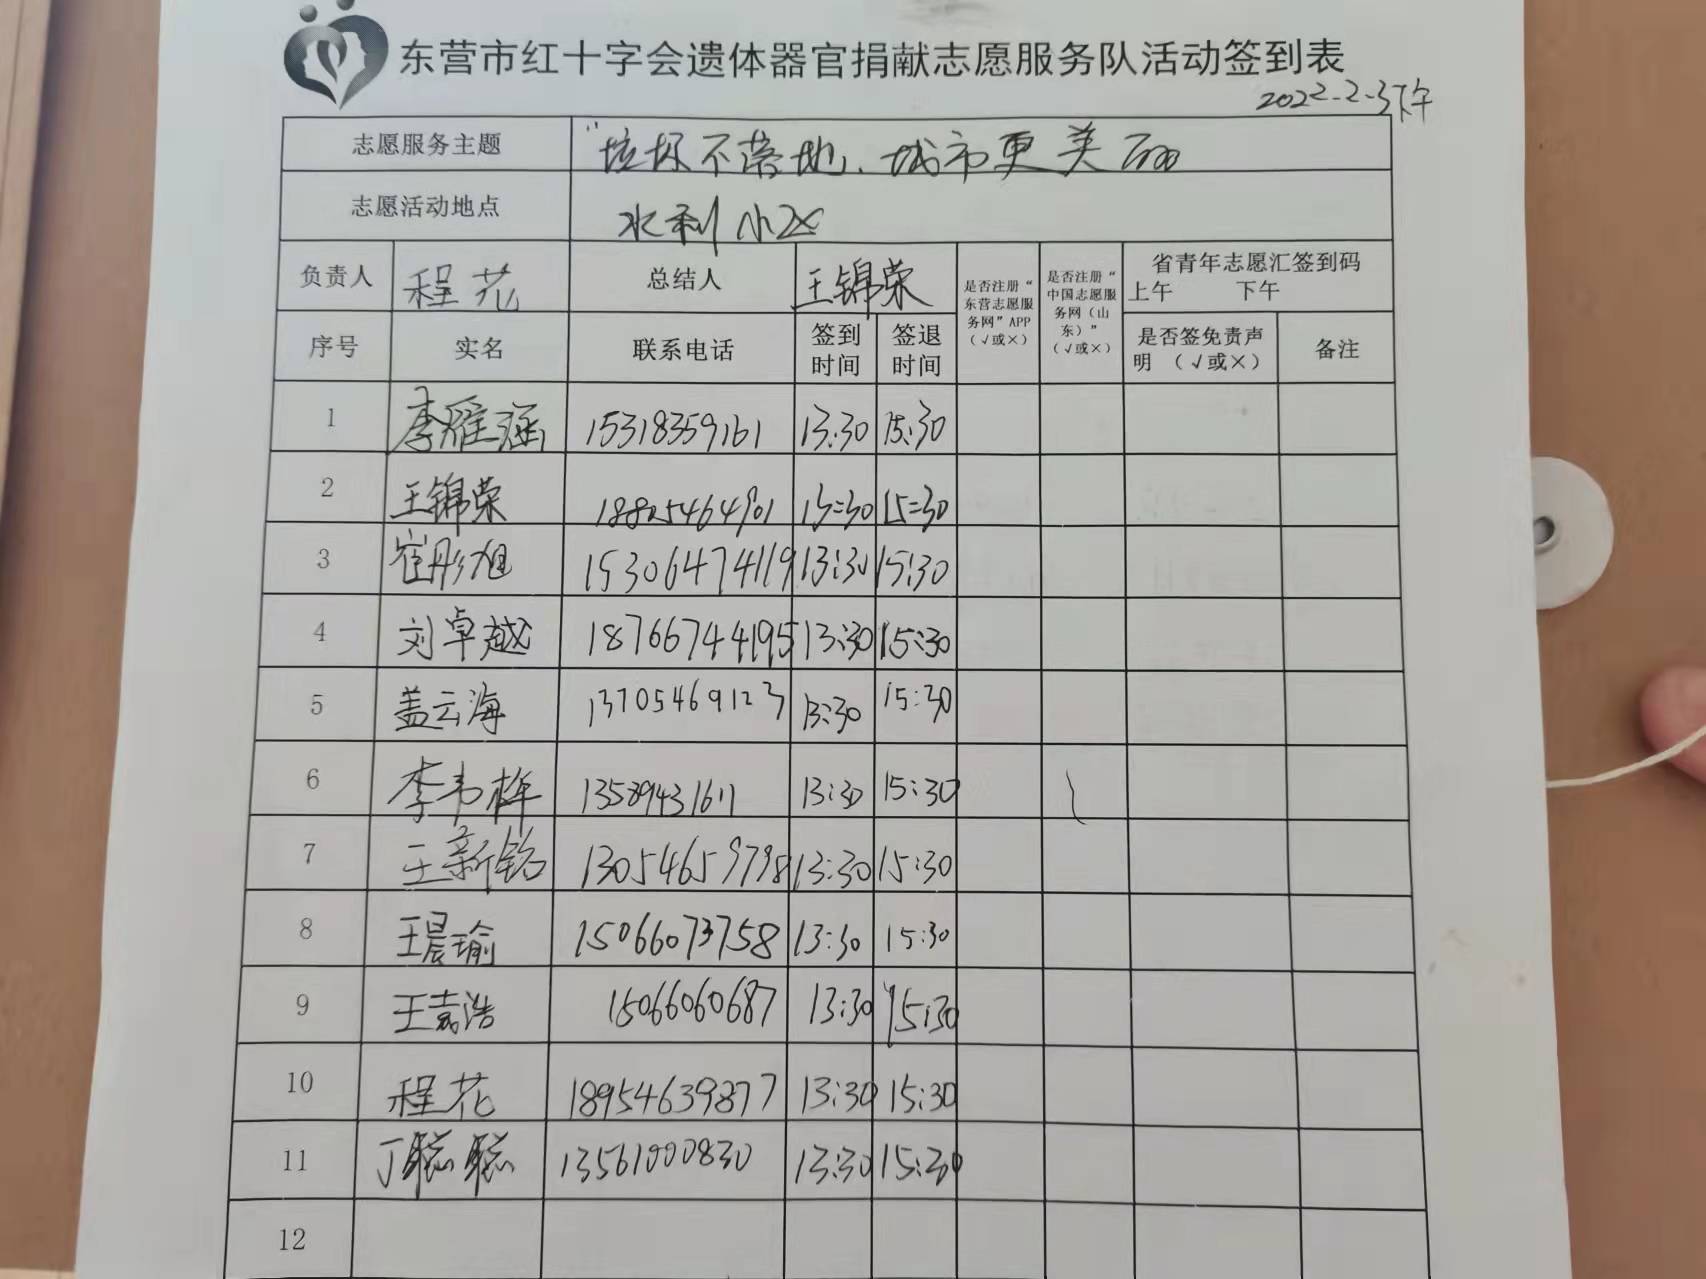 东营市红十字会遗体器官捐献志愿服务队活动签到表
2022-2-3下午
志愿服务主题 "垃圾不落地、城市更美丽
志愿活动地点 水利小区
负责人 程花 总结人 王锦荣 是否注册“东营志愿服务网”APP（√或×） 是否注册“中国志愿服务网（山东）”（√或×） 省青年志愿汇签到码
上午 下午
序号 实名 联系电话 签到时间 签退时间 是否签免责声明 （√或×） 备注
1 李雁涵 15318359161 13:30 15:30
2 王锦荣 18825464901 13:30 15:30
3 崔彤旭 15306474119 13:30 15:30
4 刘卓越 18766744195 13:30 15:30
5 盖云海 13705469123 13:30 15:30
6 李韦桦 13589431611 13:30 15:30
7 王新铭 13054659798 13:30 15:30
8 王晨瑜 15066073758 13:30 15:30
9 王嘉浩 15066060687 13:30 15:30
10 程花 18954639877 13:30 15:30
11 丁聪聪 13561000830 13:30 15:30
12